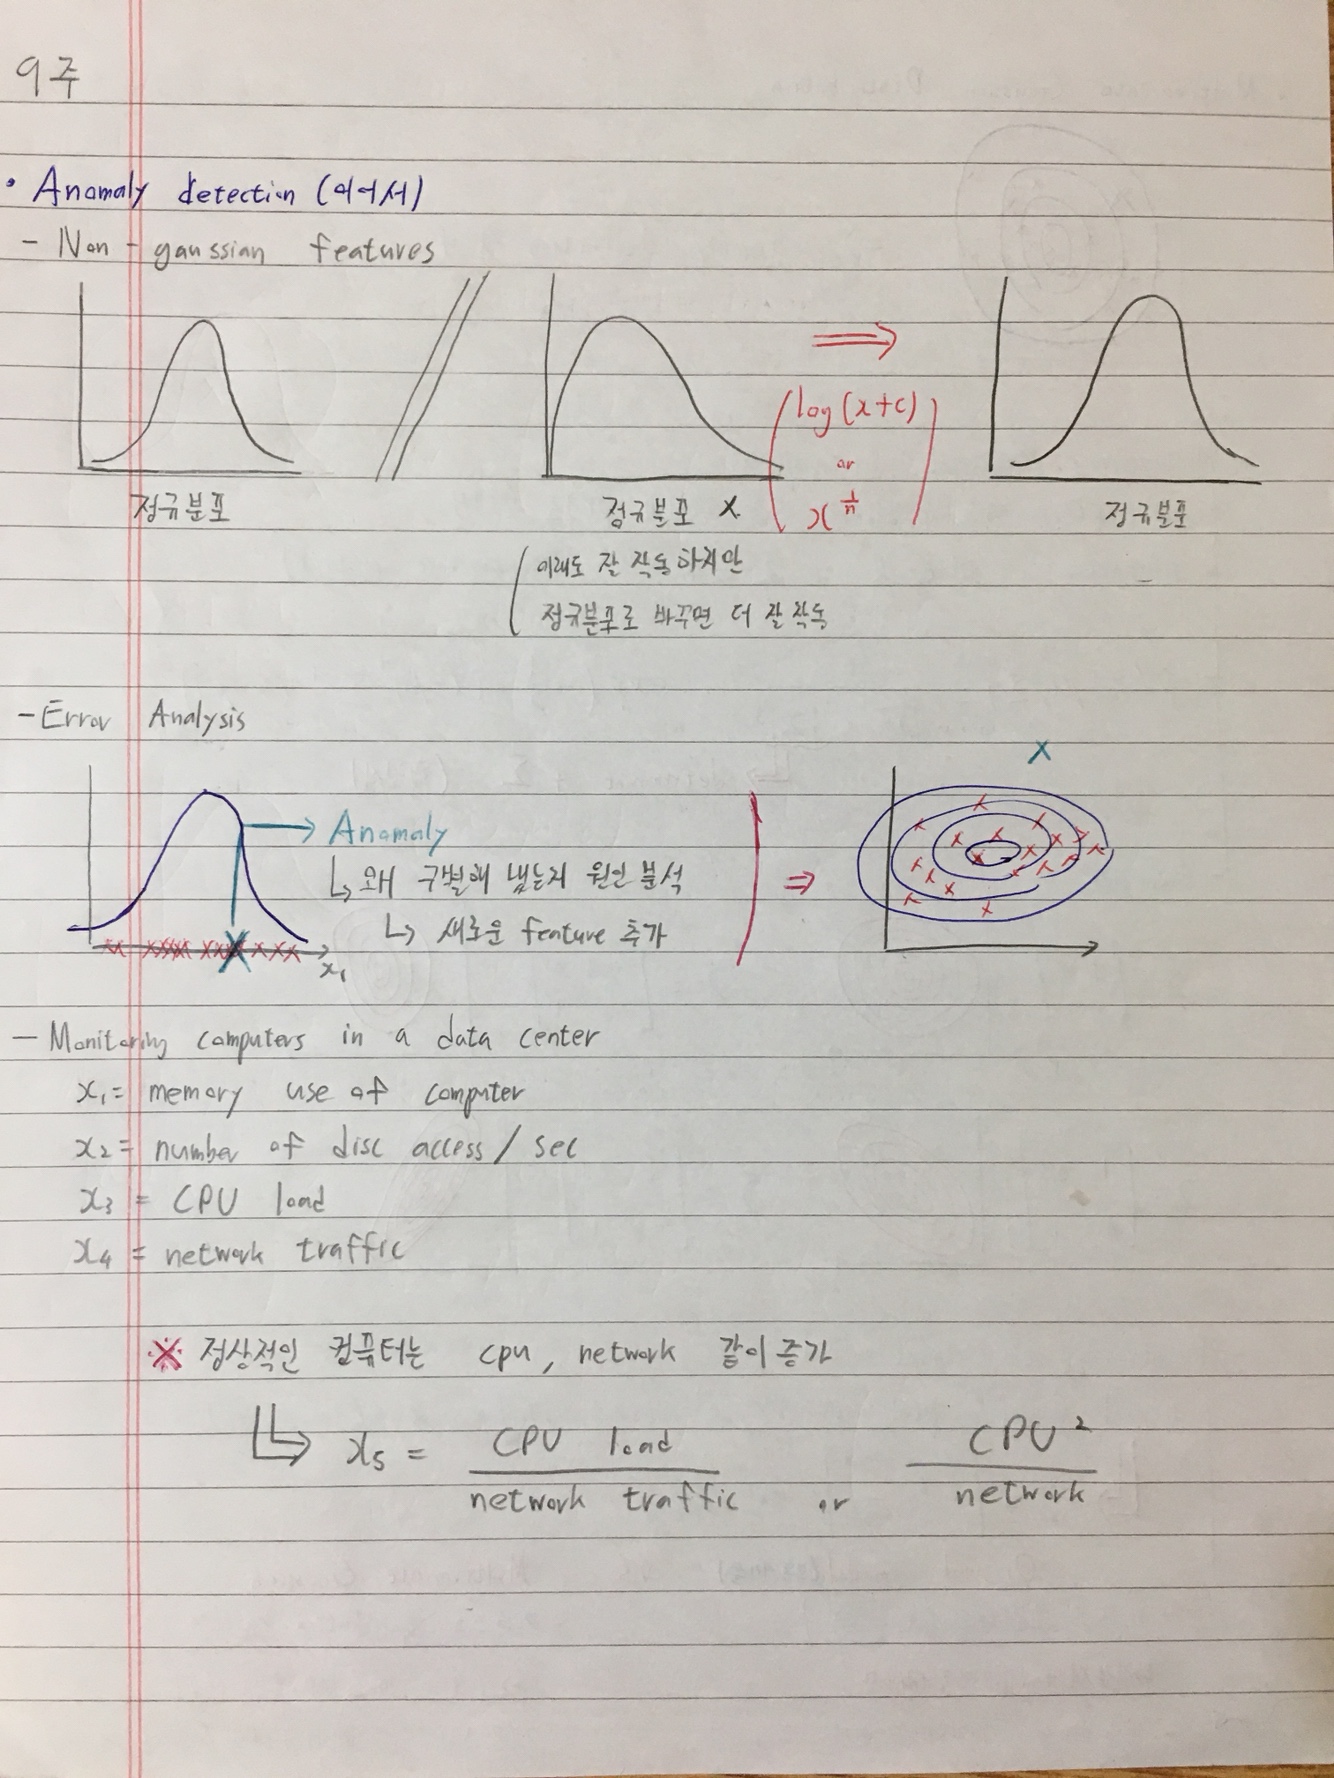 9주
• Anomaly detection (이어서)
- Non-gaussian features
log(x+c)
or
x^{1/n}
정규분포
정규분포 X
정규분포
이래도 잘 작동하지만
정규분포로 바꾸면 더 잘 작동
- Error Analysis
Anomaly
왜 구별해 냈는지 원인 분석
새로운 feature 추가
x₁
- Monitoring computers in a data center
x₁ = memory use of computer
x₂ = number of disc access / sec
x₃ = CPU load
x₄ = network traffic
※ 정상적인 컴퓨터는 cpu, network 같이 증가
x₅ = CPU load / network traffic or CPU² / network